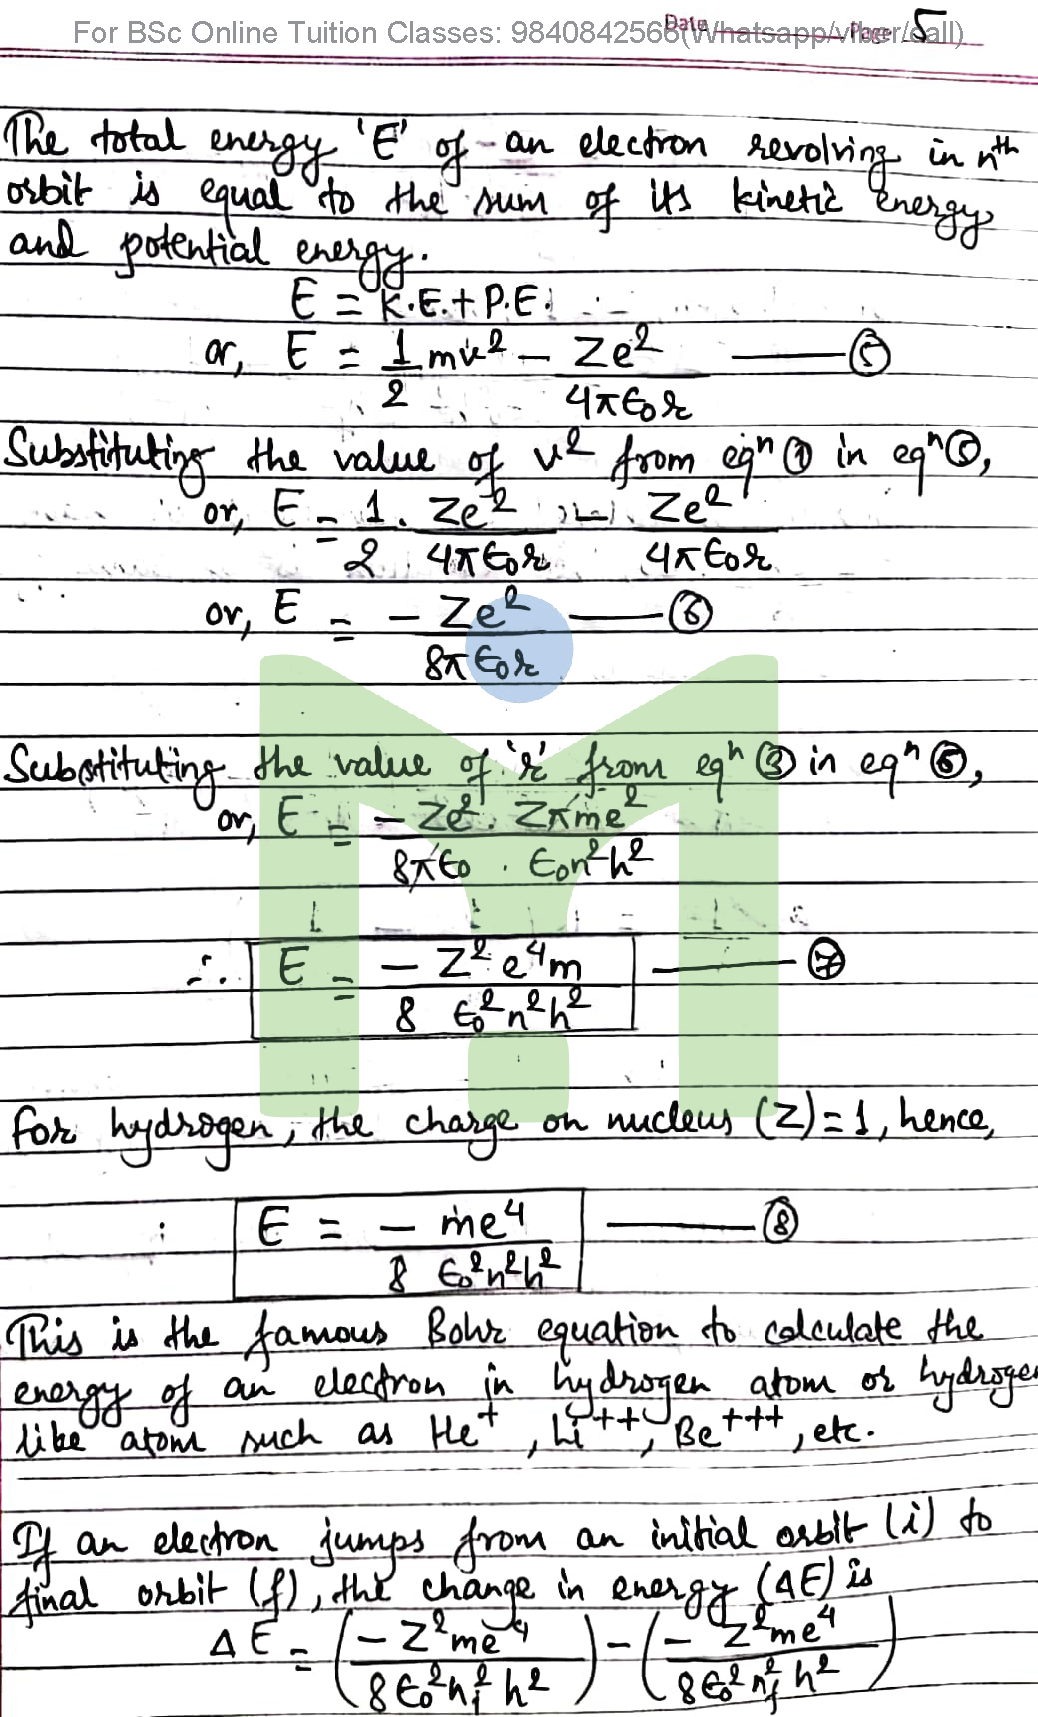 For BSc Online Tuition Classes: 9840842566(Whatsapp/viber/call)
Date Page 5
The total energy 'E' of an electron revolving in nth
orbit is equal to the sum of its kinetic energy
and potential energy.
E = K.E. + P.E.
or, E = 1/2 mv² - Ze²/4πϵ₀r ——— ⑤
Substituting the value of v² from eqⁿ ① in eqⁿ ⑤,
or, E = 1/2 . Ze²/4πϵ₀r - Ze²/4πϵ₀r
or, E = - Ze²/8πϵ₀r ——— ⑥
Substituting the value of 'r' from eqⁿ ③ in eqⁿ ⑥,
or, E = - Ze² . Zπme²/8πϵ₀ . ϵ₀n²h²
∴ E = - Z² e⁴m/8 ϵ₀²n²h² ——— ⑦
For hydrogen, the charge on nucleus (Z) = 1, hence,
: E = - me⁴/8 ϵ₀²n²h² ——— ⑧
This is the famous Bohr equation to calculate the
energy of an electron in hydrogen atom or hydrogen
like atom such as He⁺, Li⁺⁺, Be⁺⁺⁺, etc.
If an electron jumps from an initial orbit (i) to
final orbit (f), the change in energy (ΔE) is
ΔE = (- Z²me⁴/8ϵ₀²nᵢ²h²) - (- Z²me⁴/8ϵ₀²n_f²h²)